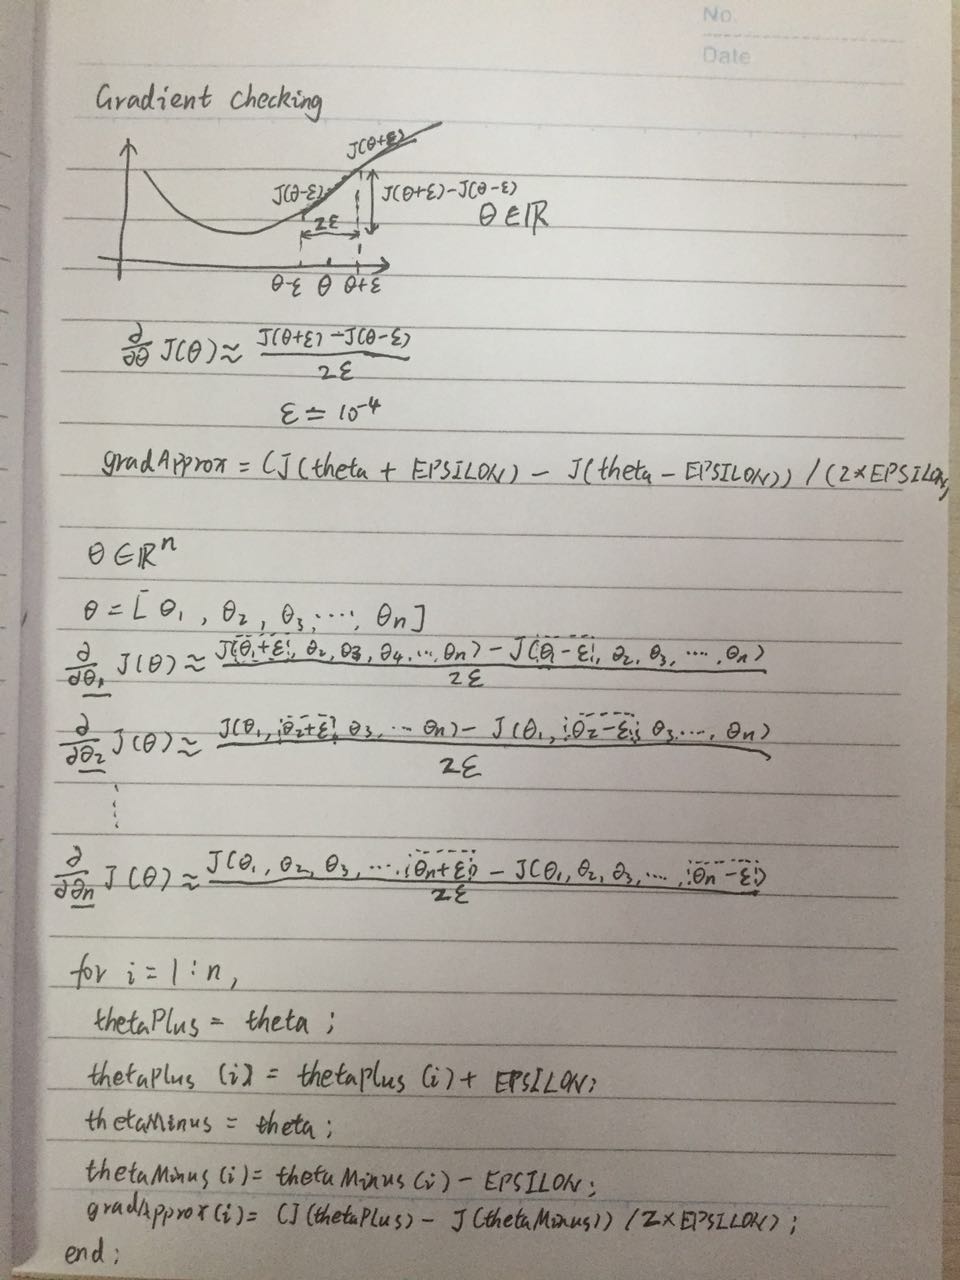 No.
Date
Gradient checking
J(θ+ε)
J(θ-ε)
J(θ+ε)-J(θ-ε)
2ε
θ∈ℝ
θ-ε θ θ+ε
∂/∂θ J(θ) ≈ J(θ+ε)-J(θ-ε) / 2ε
ε ≐ 10⁻⁴
gradApprox = (J(theta + EPSILON) - J(theta - EPSILON)) / (2×EPSILON)
θ∈ℝⁿ
θ = [θ₁, θ₂, θ₃, ..., θn]
∂/∂θ₁ J(θ) ≈ J(θ₁+ε, θ₂, θ₃, θ₄, ... θn) - J(θ₁-ε, θ₂, θ₃, ..., θn) / 2ε
∂/∂θ₂ J(θ) ≈ J(θ₁, θ₂+ε, θ₃, ... θn) - J(θ₁, θ₂-ε, θ₃..., θn) / 2ε
∂/∂θn J(θ) ≈ J(θ₁, θ₂, θ₃, ..., θn+ε) - J(θ₁, θ₂, θ₃, ..., θn-ε) / 2ε
for i = 1:n,
thetaPlus = theta;
thetaPlus (i) = thetaPlus (i) + EPSILON;
thetaMinus = theta;
thetaMinus (i) = thetaMinus (i) - EPSILON;
gradApprox(i) = (J(thetaPlus) - J(thetaMinus)) / 2×EPSILON);
end;